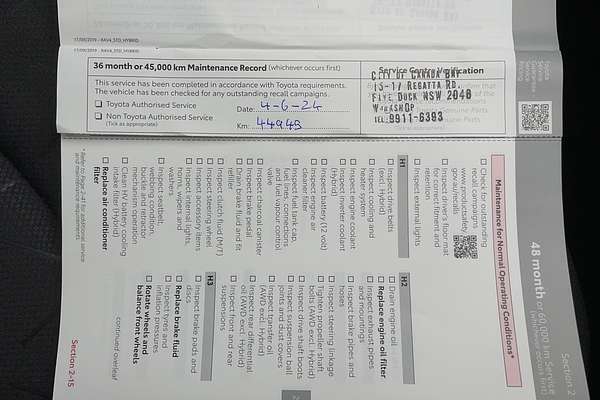 17/09/2019 - RAV4_STD_HYBRID
17/09/2019 - RAV4_STD_HYBRID
36 month or 45,000 km Maintenance Record (whichever occurs first)
This service has been completed in accordance with Toyota requirements.
The vehicle has been checked for any outstanding recall campaigns.
Toyota Authorised Service
Non Toyota Authorised Service
(Tick as appropriate)
Date: 4-6-24
Km: 44945
Service Centre Verification
CITY OF CANADA BAY
15-17 REGATTA RD.
FIVE DOCK NSW 2046
WORKSHOP
TEL: 9911-6393
Section 2
48 month or 60,000 km Service
(whichever occurs first)
Maintenance for Normal Operating Conditions*
Check for outstanding
recall campaigns
www.productsafety.
gov.au/recalls
Inspect driver's floor mat
for correct fitment and
retention
Inspect external lights
H1
Inspect drive belts
(excl. Hybrid)
Inspect cooling and
heater system
Inspect engine coolant
Inspect inverter coolant
(Hybrid)
Inspect battery (12 volt)
Inspect engine air
cleaner filter
Inspect fuel tank cap,
fuel lines, connections
and fuel vapour control
valve
Inspect charcoal canister
Inspect brake pedal
Drain brake fluid and fit
refiller
Inspect clutch fluid (M/T)
Inspect steering wheel
Inspect emergency items
Inspect internal lights,
horns, wipers and
washers
Inspect seatbelt,
webbing condition,
buckle and retractor
mechanism operation
Clean HV battery cooling
intake filter (Hybrid)
Replace air conditioner
filter
H2
Drain engine oil
Replace engine oil filter
Inspect exhaust pipes
and mountings
Inspect brake pipes and
hoses
Inspect steering linkage
Tighten propeller shaft
bolts (AWD excl. Hybrid)
Inspect drive shaft boots
Inspect suspension ball
joints and dust covers
Inspect transfer oil
(AWD excl. Hybrid)
Inspect rear differential
oil (AWD excl. Hybrid)
Inspect front and rear
suspensions
H3
Inspect brake pads and
discs
Replace brake fluid
Inspect tyres and
inflation pressures
Rotate wheels and
balance front wheels
continued overleaf
* Refer to Page 2-41 for additional service
and maintenance items.
Section 2-15